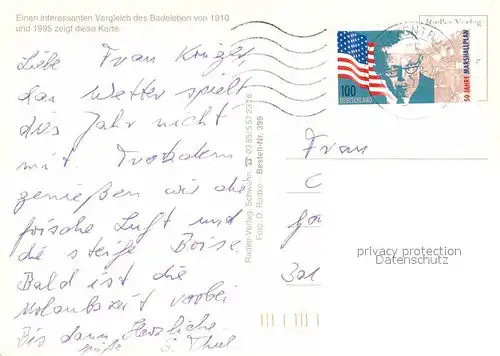 Einen interessanten Vergleich des Badeleben von 1910
und 1995 zeigt diese Karte.
Liebe Frau Krüger
das Wetter spielt
dies Jahr nicht
mit. Trotzdem
genießen wir die
frische Luft und
die steife Brise.
Bald ist die
Urlaubszeit vorbei
Bis dann Herzliche
Grüße S. Thiel
Radke-Verlag, Schwerin, ☎ 03 85/5 57 23 18
Foto: D. Radke – Bestell-Nr. 399
Radke-Verlag
100
DEUTSCHLAND
50 JAHRE MARSHALLPLAN
Frau
privacy protection
Datenschutz